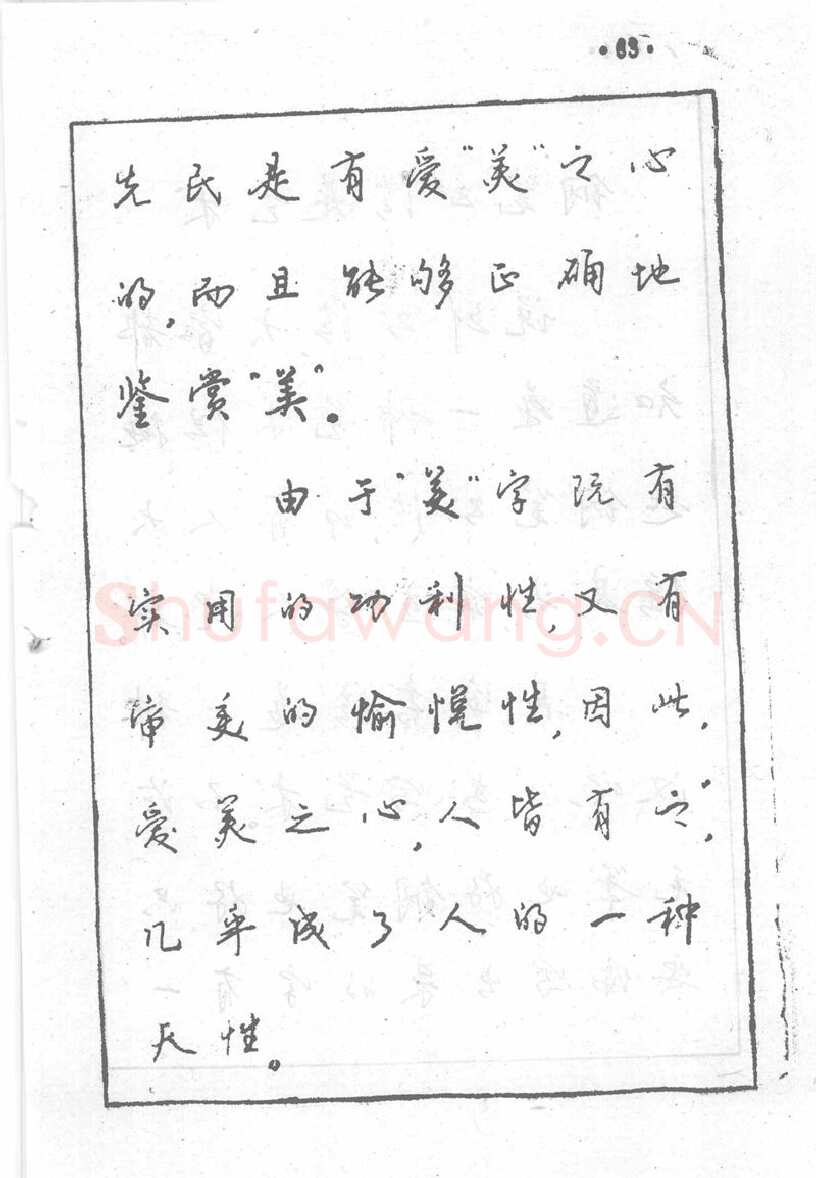 ·63·
先民是有爱“美”之心
的，而且能够正确地
鉴赏“美”。
由于“美”字既有
实用的功利性，又有
审美的愉悦性，因此，
爱美之心，人皆有之”，
几乎成了人的一种
天性。
Shufawang.CN